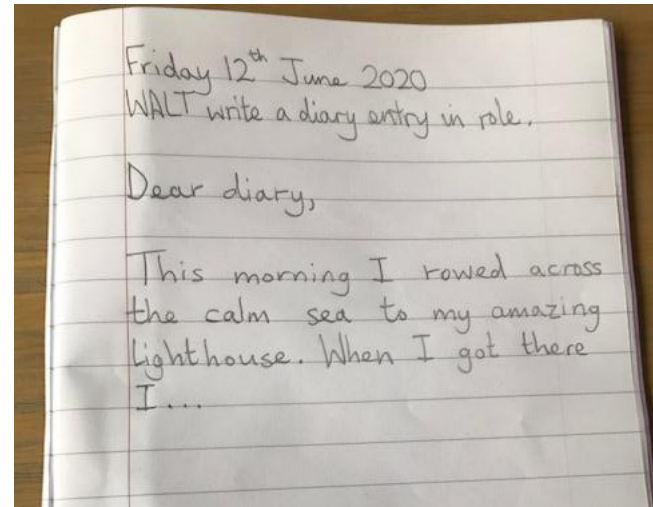 Friday 12th June 2020
WALT write a diary entry in role.
Dear diary,
This morning I rowed across
the calm sea to my amazing
lighthouse. When I got there
I...